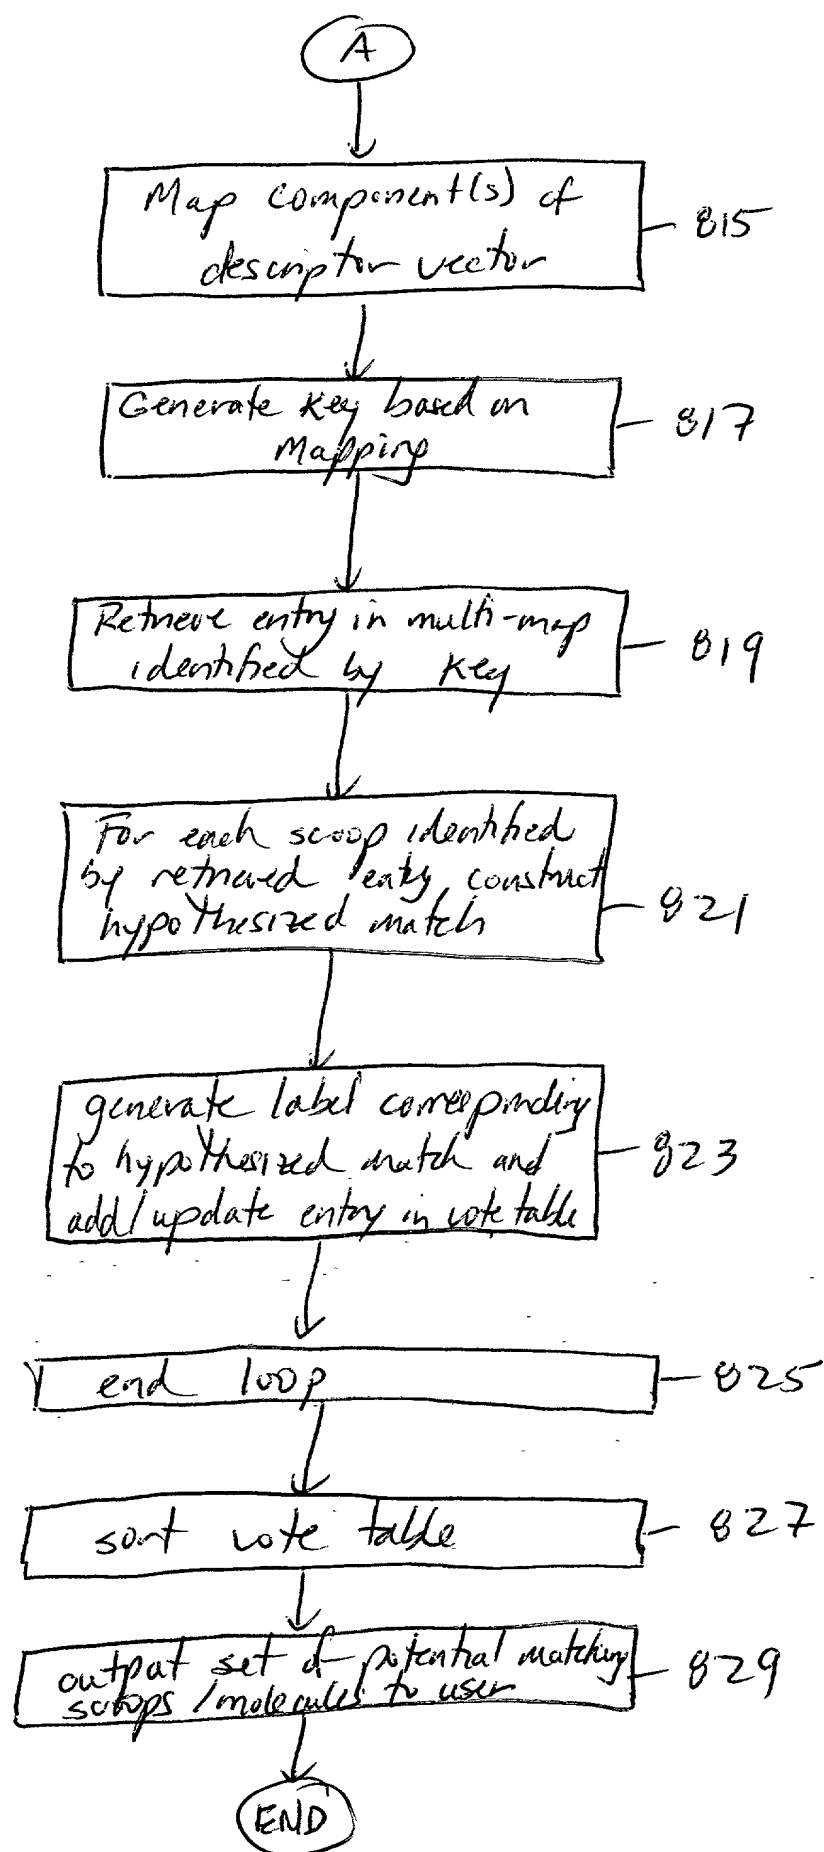 A
Map component(s) of
descriptor vector
815
Generate key based on
Mapping
817
Retrieve entry in multi-map
identified by key
819
For each scoop identified
by retrieved entry, construct
hypothesized match
821
generate label corresponding
to hypothesized match and
add/update entry in vote table
823
end loop
825
sort vote table
827
output set of potential matching
scoops/molecules to user
829
END